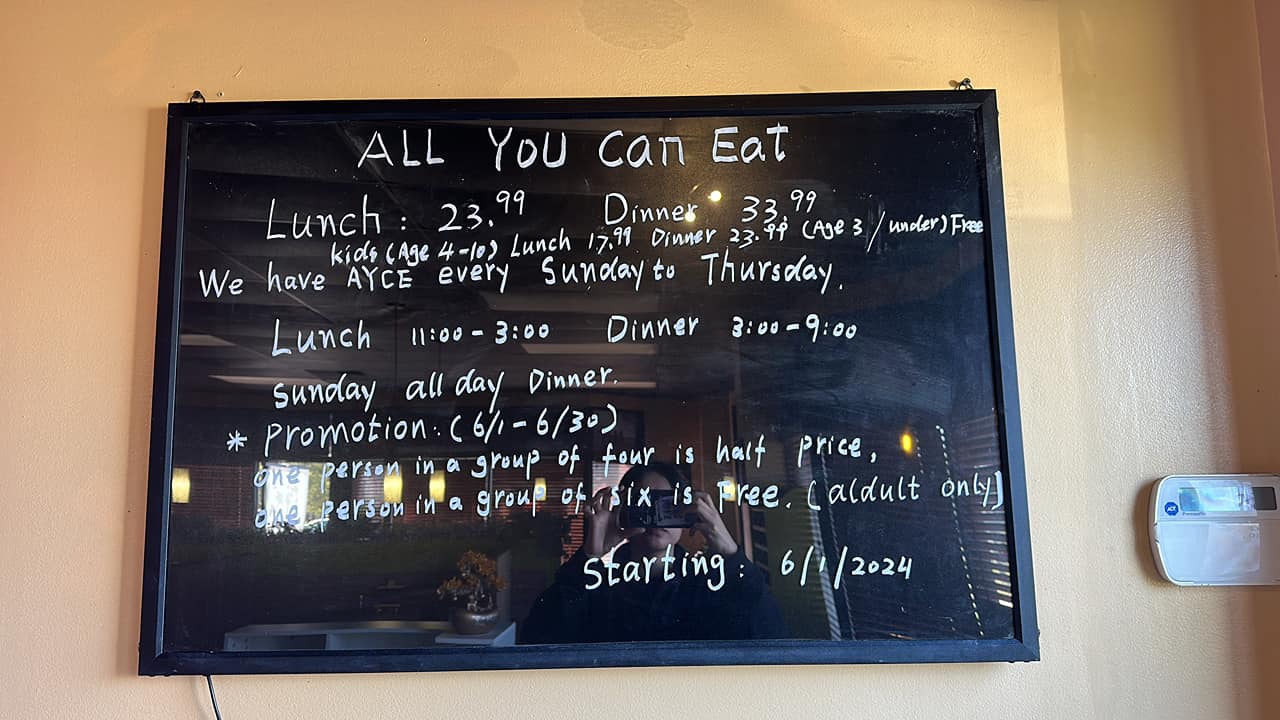 ALL YOU Can Eat
Lunch: 23.99 Dinner 33.99
kids (Age 4-10) Lunch 17.99 Dinner 23.99 (Age 3 / under) Free
We have AYCE every Sunday to Thursday.
Lunch 11:00 - 3:00 Dinner 3:00 - 9:00
Sunday all day Dinner.
* Promotion: (6/1 - 6/30)
one person in a group of four is half price,
one person in a group of six is Free. (aldult only)
Starting: 6/1/2024
ADT